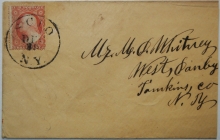 N.Y.
Mr. M. J. Whitney
West Danby
Tomkins, Co
N. Y.